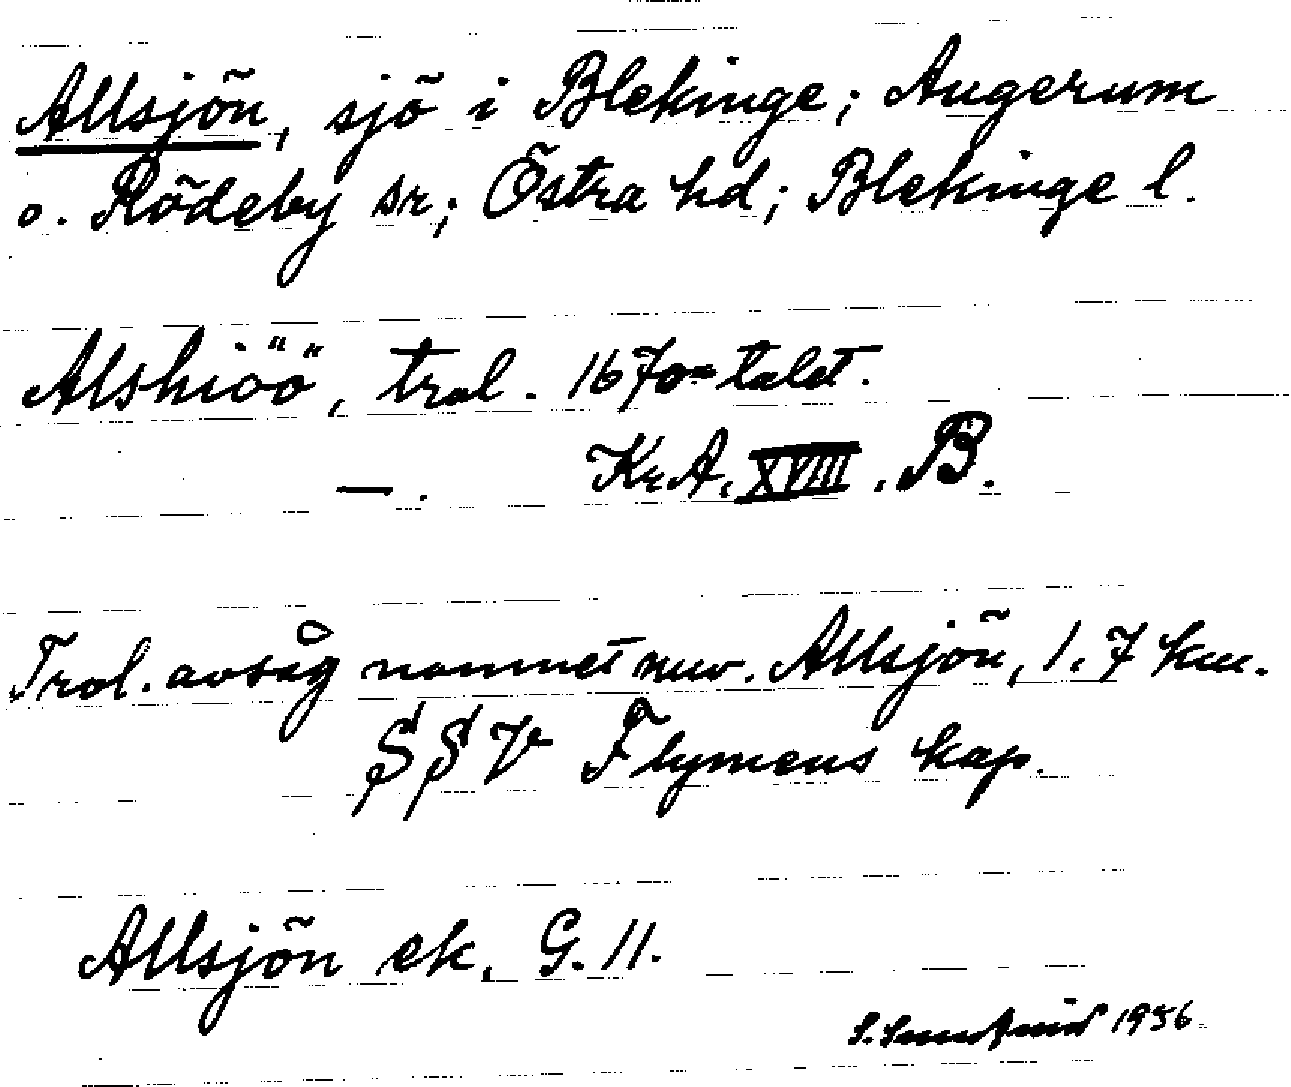 Allsjön, sjö i Blekinge; Augerum
o. Rödeby sr; Östra hd; Blekinge l.
Alshiöö, trol. 1670-talet.
—. KrA. XVIII. B.
Trol. avsåg namnet nuv. Allsjön, 1.7 km.
SSV Flymens kap.
Allsjön ek. G. 11.
S. 1956.